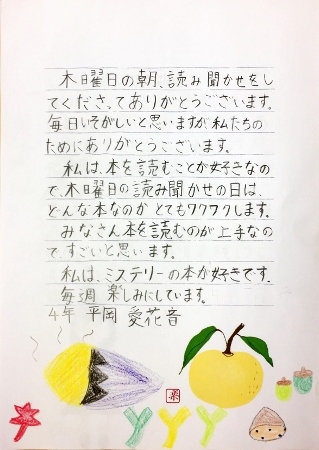 木曜日の朝、読み聞かせをし
てくださってありがとうございます。
毎日いそがしいと思いますが、私たちの
ためにありがとうございます。
私は、本を読むことが好きなの
で、木曜日の読み聞かせの日は、
どんな本なのかとてもワクワクします。
みなさん本を読むのが上手なの
で、すごいと思います。
私は、ミステリーの本が好きです。
毎週楽しみにしています。
4年 平岡 愛花音